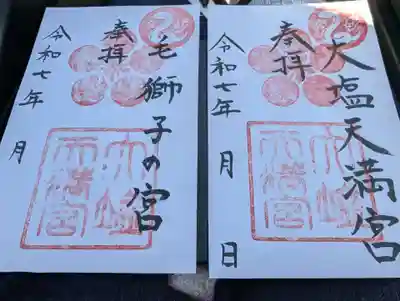 奉拝
毛獅子の宮
令和七年 月
奉拝
大塩天満宮
令和七年 月 日
大塩
天満宮
大塩
天満宮